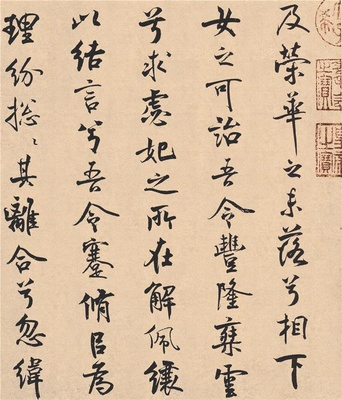 及榮華之未落兮相下
女之可詒吾令豐隆椉雲
兮求虙妃之所在解佩纕
以結言兮吾令蹇脩以為
理紛揔〻其離合兮忽緯